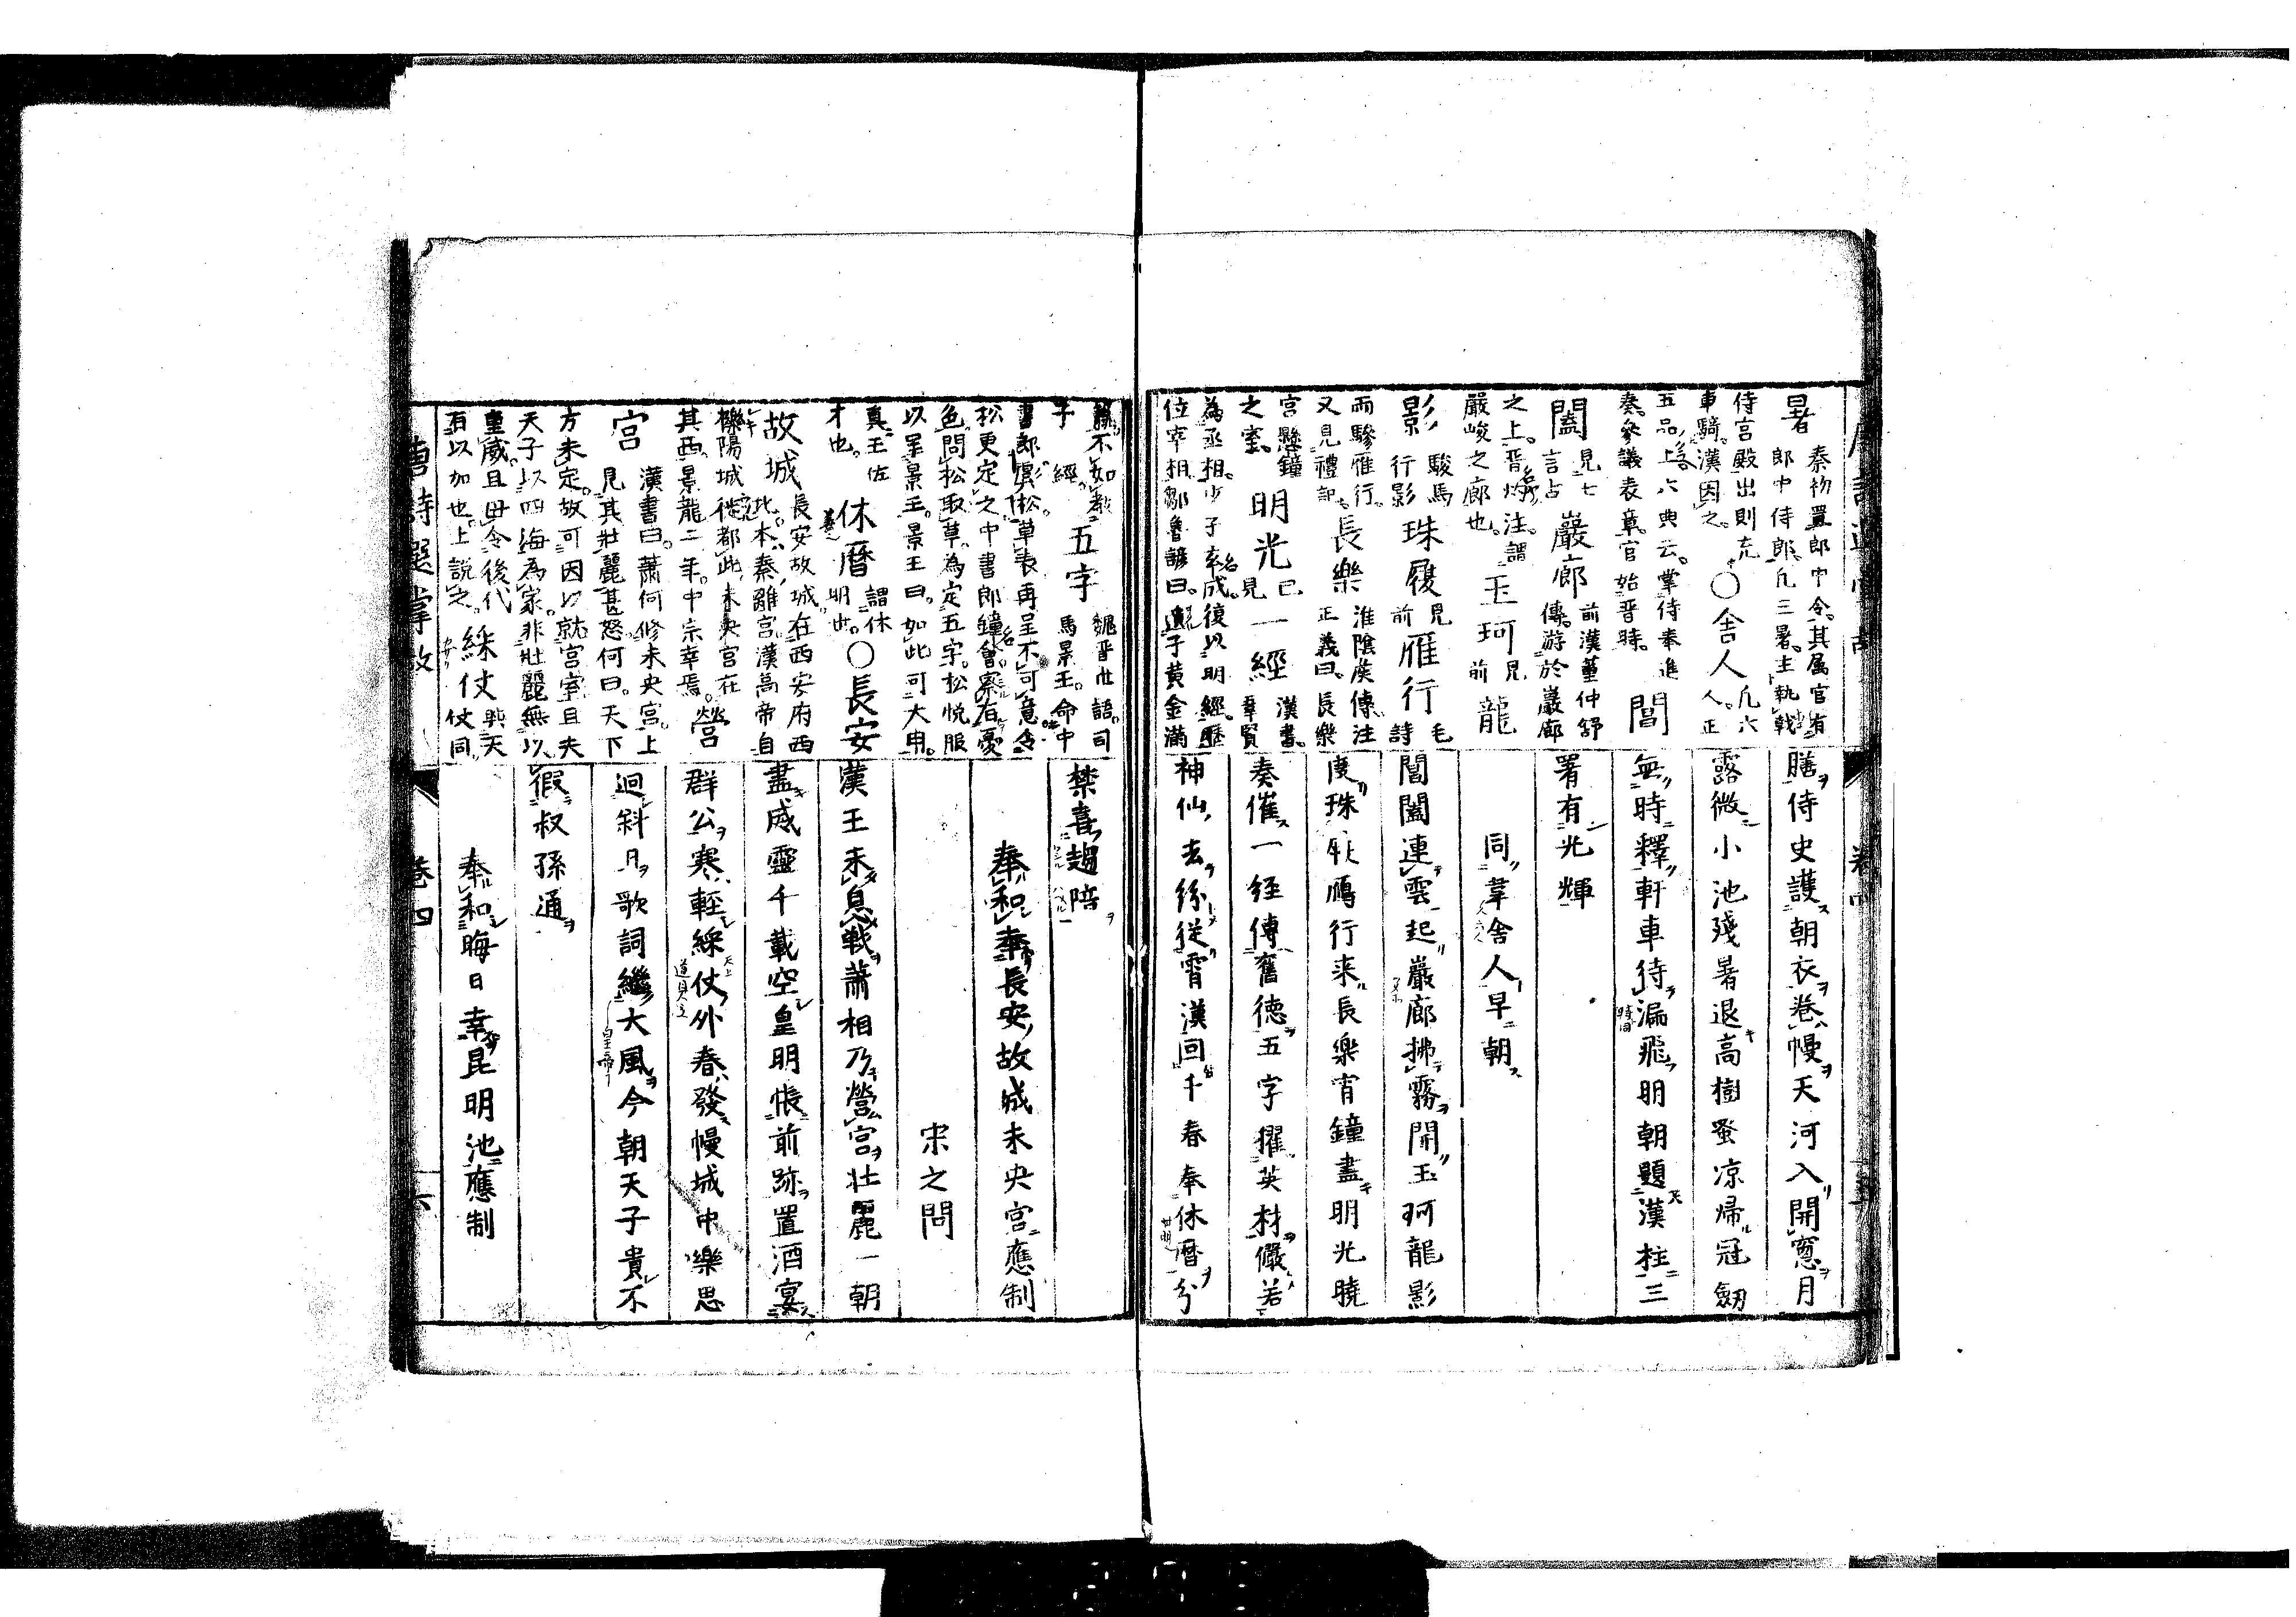 署 秦初置郎中令。其属官有
郎中侍郎。凡三署。主執戟
侍宮殿出則充
車騎。漢因之。 ○舍人 凡六人。正
五品上六典云。掌侍奉進
奏。參議表章。官始晋時。 閶
闔 見七言占 巖廊 前漢董仲舒傳。游於巖廊
之上。晋灼注。謂
嚴峻之廊也。 玉珂 見前 龍
影 駿馬行影 珠履 見前 雁行 毛詩
兩驂雁行。
又見禮記。 長樂 淮陰侯傳注
正義曰。長樂
宮懸鐘
之室。 明光 已見 一經 漢書。韋賢
為丞相。少子玄成。復以明經歷
位宰相。鄒魯諺曰。遺子黄金滿
膳侍史護朝衣卷幔天河入開窓月
露微小池殘暑退高樹蚤凉帰冠劔
無時釋軒車待漏飛明朝題漢柱三
署有光輝
同韋舍人早朝
閶闔連雲起巖廊拂霧開玉珂龍影
度珠履鴈行来長樂宵鐘盡明光曉
奏催一経傳舊徳五字擢英材儼若
神仙去紛従霄漢回千春奉休暦分
籯不如教
子一經 五字 魏晋世語。司
馬景王。命中
書郎虞松。草表再呈不可意令
松更定之中書郎鐘會察有憂
色問松取草。為定五字。松悦服
以呈景王。景王曰。如此可大用。
真王佐
才也。 休暦 謂休明也。 ○長安
故城 長安故城在西安府西
此本秦離宮漢高帝自
櫟陽城徙都此未央宮在
其西。景龍二年。中宗幸焉。 營
宮 漢書曰。蕭何修未央宮。上
見其壮麗甚怒何曰。天下
方未定。故可因以就宮室且夫
天子以四海為家。非壮麗無以
重威。且毋令後代
有以加也。上說之。 綵仗 與天仗同
禁喜趨陪
奉和幸長安故城未央宮應制
宋之問
漢王未息戦蕭相乃營宮壮麗一朝
盡威靈千載空皇明悵前跡置酒宴
群公寒輕綵仗外春發幔城中樂思
迴斜日歌詞繼大風今朝天子貴不
假叔孫通
奉和晦日幸昆明池應制
唐詩選掌故 卷四 六